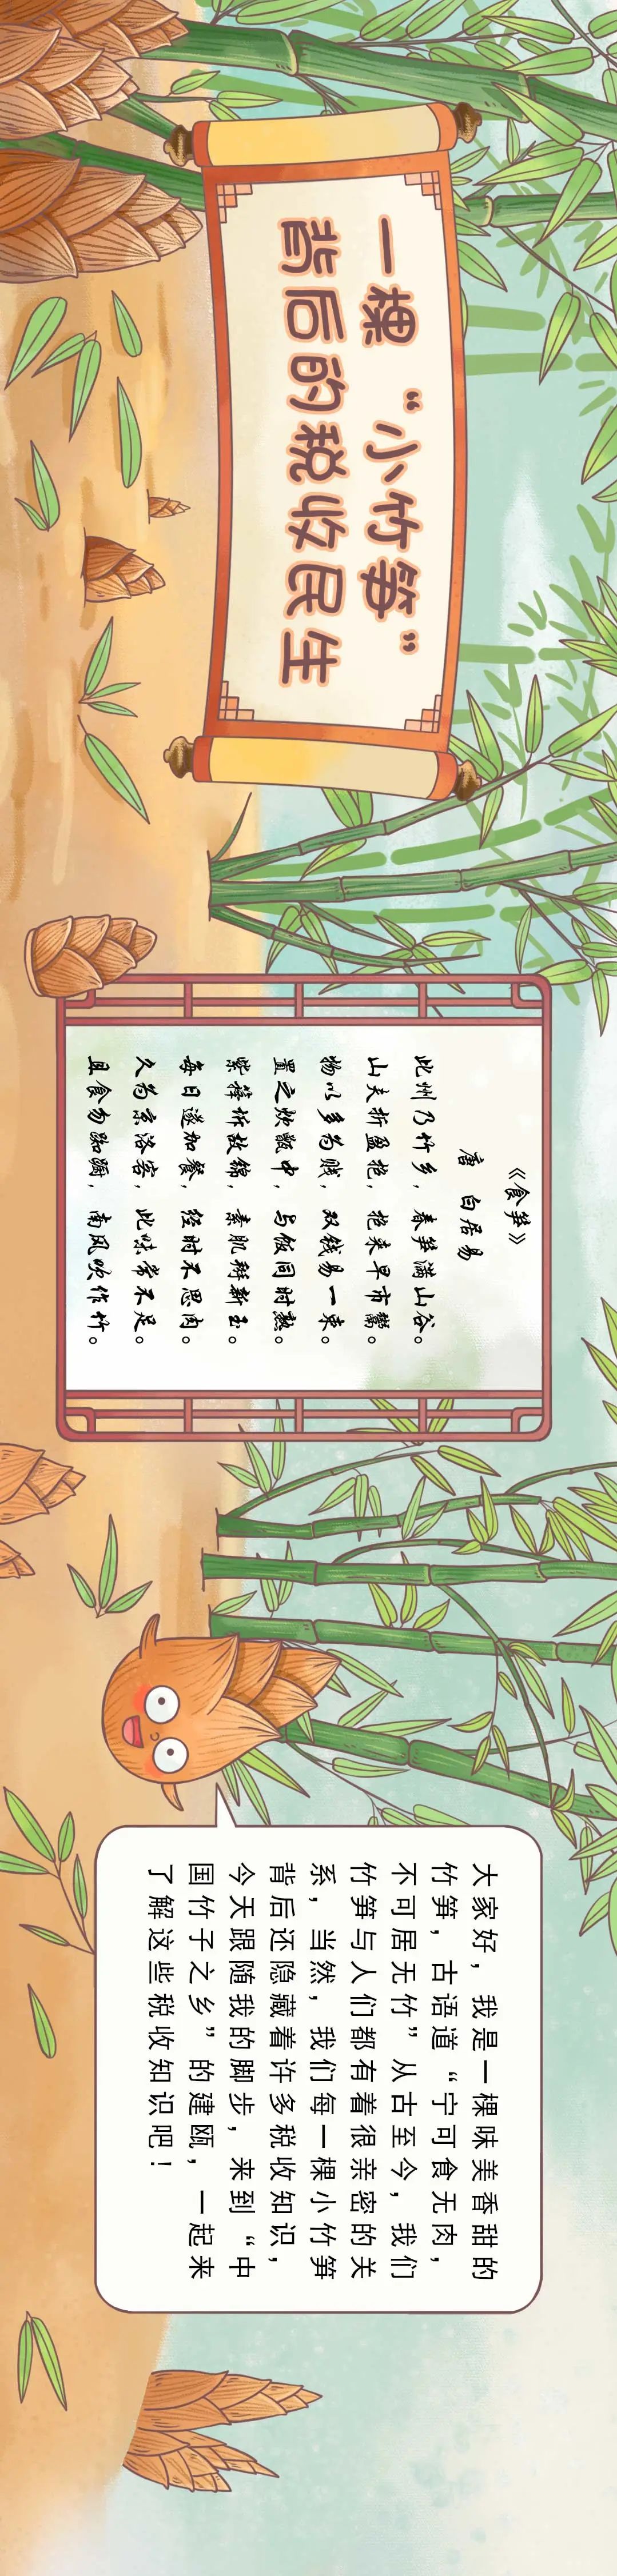 一棵“小竹笋”
背后的税收民生
《食笋》
唐 白居易
此州乃竹乡，春笋满山谷。
山夫折盈抱，抱来早市鬻。
物以多为贱，双钱易一束。
置之炊甑中，与饭同时熟。
紫箨坼故锦，素肌擘新玉。
每日遂加餐，经时不思肉。
久为京洛客，此味常不足。
且食勿踟蹰，南风吹作竹。
大家好，我是一棵味美香甜的
竹笋，古语道“宁可食无肉，
不可居无竹”从古至今，我们
竹笋与人们都有着很亲密的关
系，当然，我们每一棵小竹笋
背后还隐藏着许多税收知识，
今天跟随我的脚步，来到“中
国竹子之乡”的建瓯，一起来
了解这些税收知识吧！